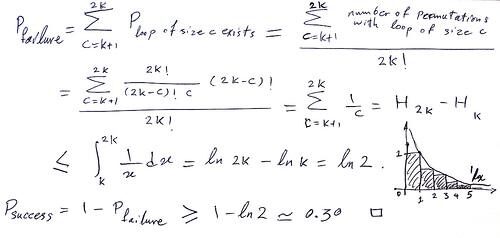 P_failure = Σ_{c=k+1}^{2k} P_{loop of size c exists} = \frac{Σ_{c=k+1}^{2k} number of permutations with loop of size c}{2k!}
= \frac{Σ_{c=k+1}^{2k} \frac{2k!}{(2k-c)! c} (2k-c)!}{2k!} = Σ_{c=k+1}^{2k} \frac{1}{c} = H_{2k} - H_k
≤ ∫_k^{2k} \frac{1}{x} dx = ln 2k - ln k = ln 2.
P_success = 1 - P_failure ≥ 1 - ln 2 ≃ 0.30 □
1
0 1 2 3 4 5 1/x